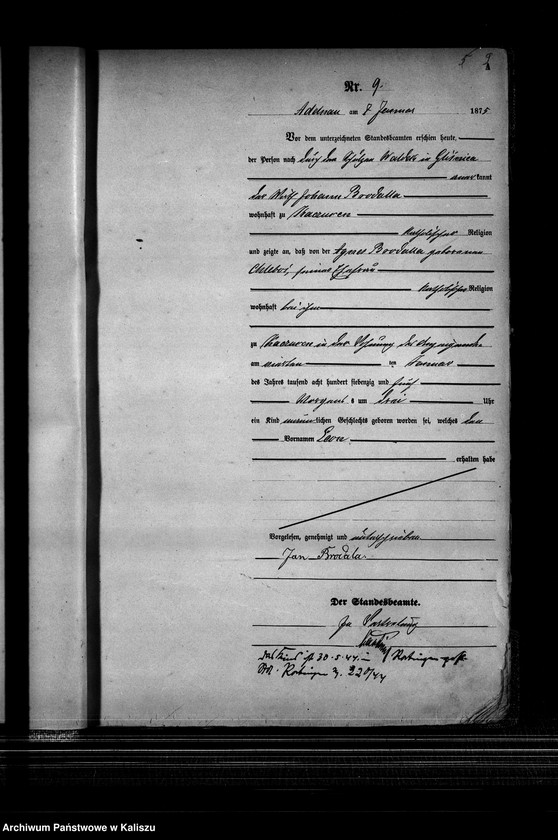 5 2
Nr. 9.
Adelnau am 8 Januar 1875
Vor dem unterzeichneten Standesbeamten erschien heute,
der Person nach durch den Schulzen in Gliśnica
anerkannt
der Wirth Johann Brodalla
wohnhaft zu
katholischer Religion
und zeigte an, daß von der Agnes Brodalla geborenen
seiner Ehefrau
katholischer Religion
wohnhaft bei ihm
zu in der Wohnung des
am vierten ten Januar
des Jahres tausend acht hundert siebenzig und fünf
Morgens um drei Uhr
ein Kind männlichen Geschlechts geboren worden sei, welches den
Vornamen Leon
erhalten habe
Vorgelesen, genehmigt und unterschrieben
Jan Brodala
Der Standesbeamte.
In Vertretung
Das Kind ist 30.5.44 in Ratingen gest.
Ratingen 220/44
Archiwum Państwowe w Kaliszu